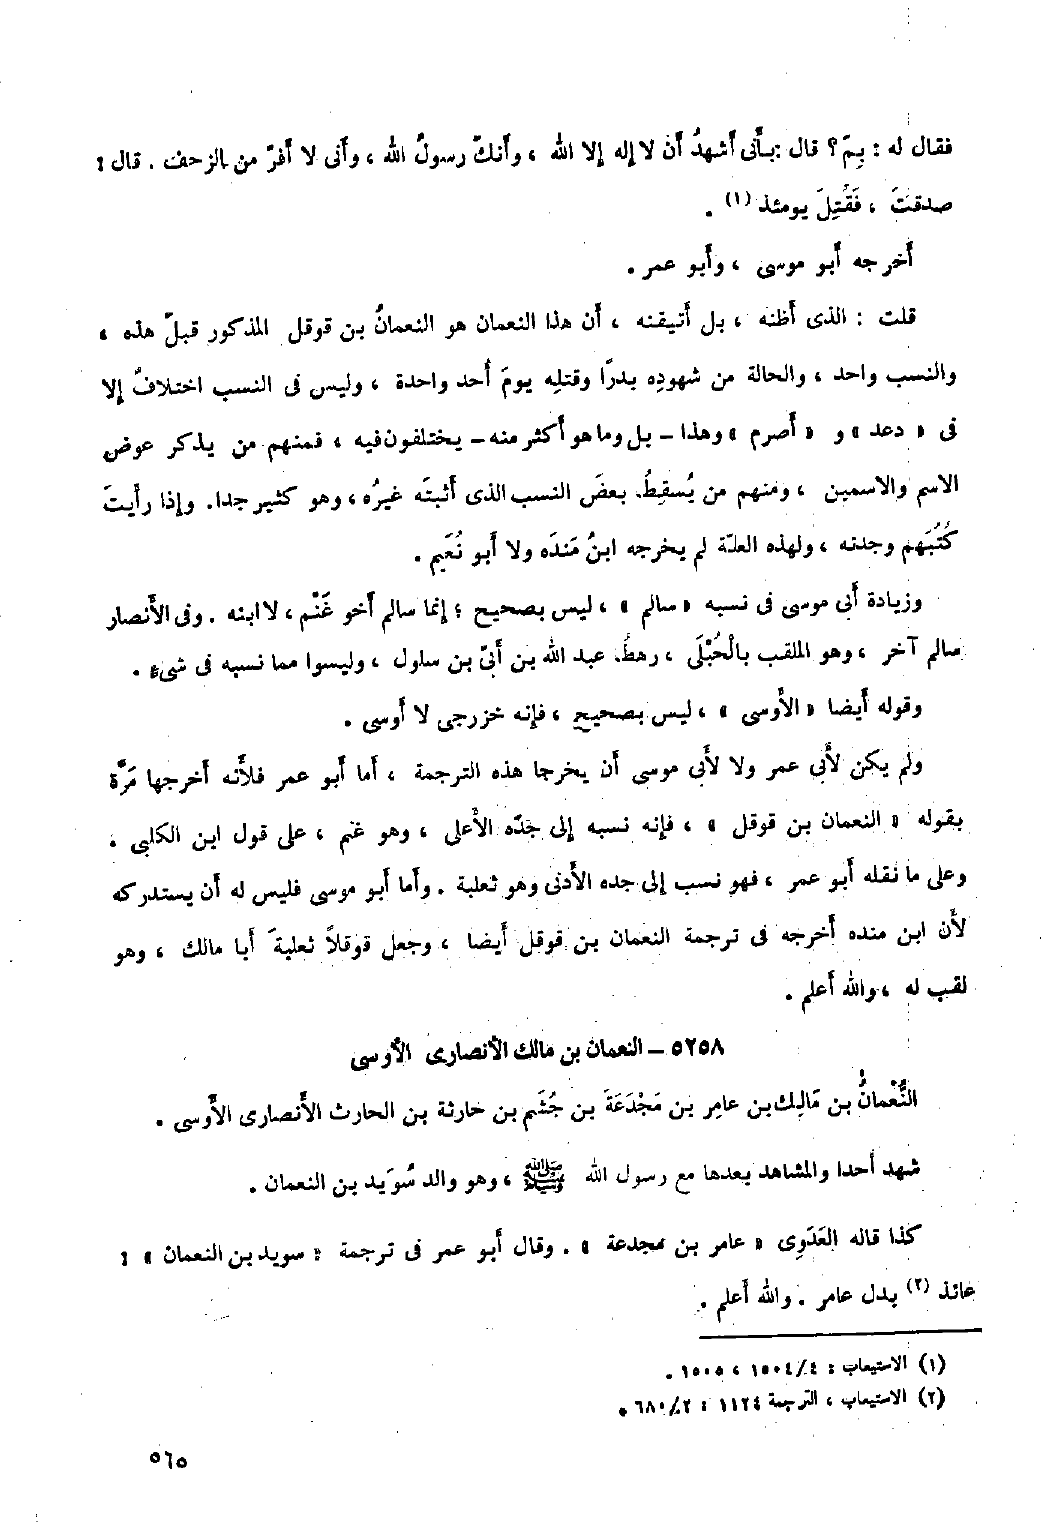 فقال له : بِمَ؟ قال : بأَنى أَشهدُ أَن لا إله إلا الله ، وأَنكَ رسولُ الله ، وأَنى لا أَفرّ من الزحف . قال :
صدقتَ ، فَقُتِلَ يومئذ (١) .
أَخرجه أَبو موسى ، وأَبو عمر .
قلت : الذى أَظنه ، بل أَتيقنه ، أَن هذا النعمان هو النعمانُ بن قوقل المذكور قبلَ هذه ،
والنسب واحد ، والحالة من شهودِه بدرًا وقتلِه يومَ أُحد واحدة ، وليس فى النسب اختلافٌ إلا
فى « دعد » و « أَصرم » وهذا – بل وما هو أَكثر منه – يختلفون فيه ، فمنهم من يذكر عوض
الاسم والاسمين ، ومنهم من يُسقِطُ بعضَ النسب الذى أَثبتَه غيرُه ، وهو كثير جدا. وإذا رأَيتَ
كُتُبَهم وجدته ، ولهذه العلة لم يخرجه ابنُ مَندَه ولا أَبو نُعَيم .
وزيادة أَبى موسى فى نسبه « سالم » ، ليس بصحيح ؛ إنما سالم أَخو غَنْم ، لا ابنه . وفى الأَنصار
سالم آخر ، وهو الملقب بالْحُبْلَى ، رهطُ عبد الله بن أُبىّ بن سلول ، وليسوا مما نسبه فى شىء .
وقوله أَيضا « الأَوسى » ، ليس بصحيح ، فإنه خزرجى لا أَوسى .
ولم يكن لأَبى عمر ولا لأَبى موسى أَن يخرجا هذه الترجمة ، أَما أَبو عمر فلأَنه أَخرجها مَرَّة
بقوله « النعمان بن قوقل » ، فإنه نسبه إلى جدّه الأَعلى ، وهو غنم ، على قول ابن الكلبى .
وعلى ما نقله أَبو عمر ، فهو نسب إلى جده الأَدنى وهو ثعلبة . وأَما أَبو موسى فليس له أَن يستدركه
لأَن ابن منده أَخرجه فى ترجمة النعمان بن قوقل أَيضا ، وجعل قوقلاً ثعلبةَ أَبا مالك ، وهو
لقب له ، والله أَعلم .
٥٢٥٨ – النعمان بن مالك الأنصارى الأوسى
النُّعْمانُ بن مَالِك بن عامِر بن مَجْدَعَةَ بن جُشَم بن حارثة بن الحارث الأَنصارى الأَوسى .
شهد أُحدا والمشاهد بعدها مع رسول الله ﷺ ، وهو والد سُوَيد بن النعمان .
كذا قاله العَدَوِى « عامر بن مجدعة » . وقال أَبو عمر فى ترجمة « سويد بن النعمان » :
عائذ (٢) بدل عامر . والله أَعلم .
(١) الاستيعاب : ١٥٠٤/٤ ، ١٥٠٥ .
(٢) الاستيعاب ، الترجمة ١١٢٤ : ٦٨٠/٢ .
٥٦٥